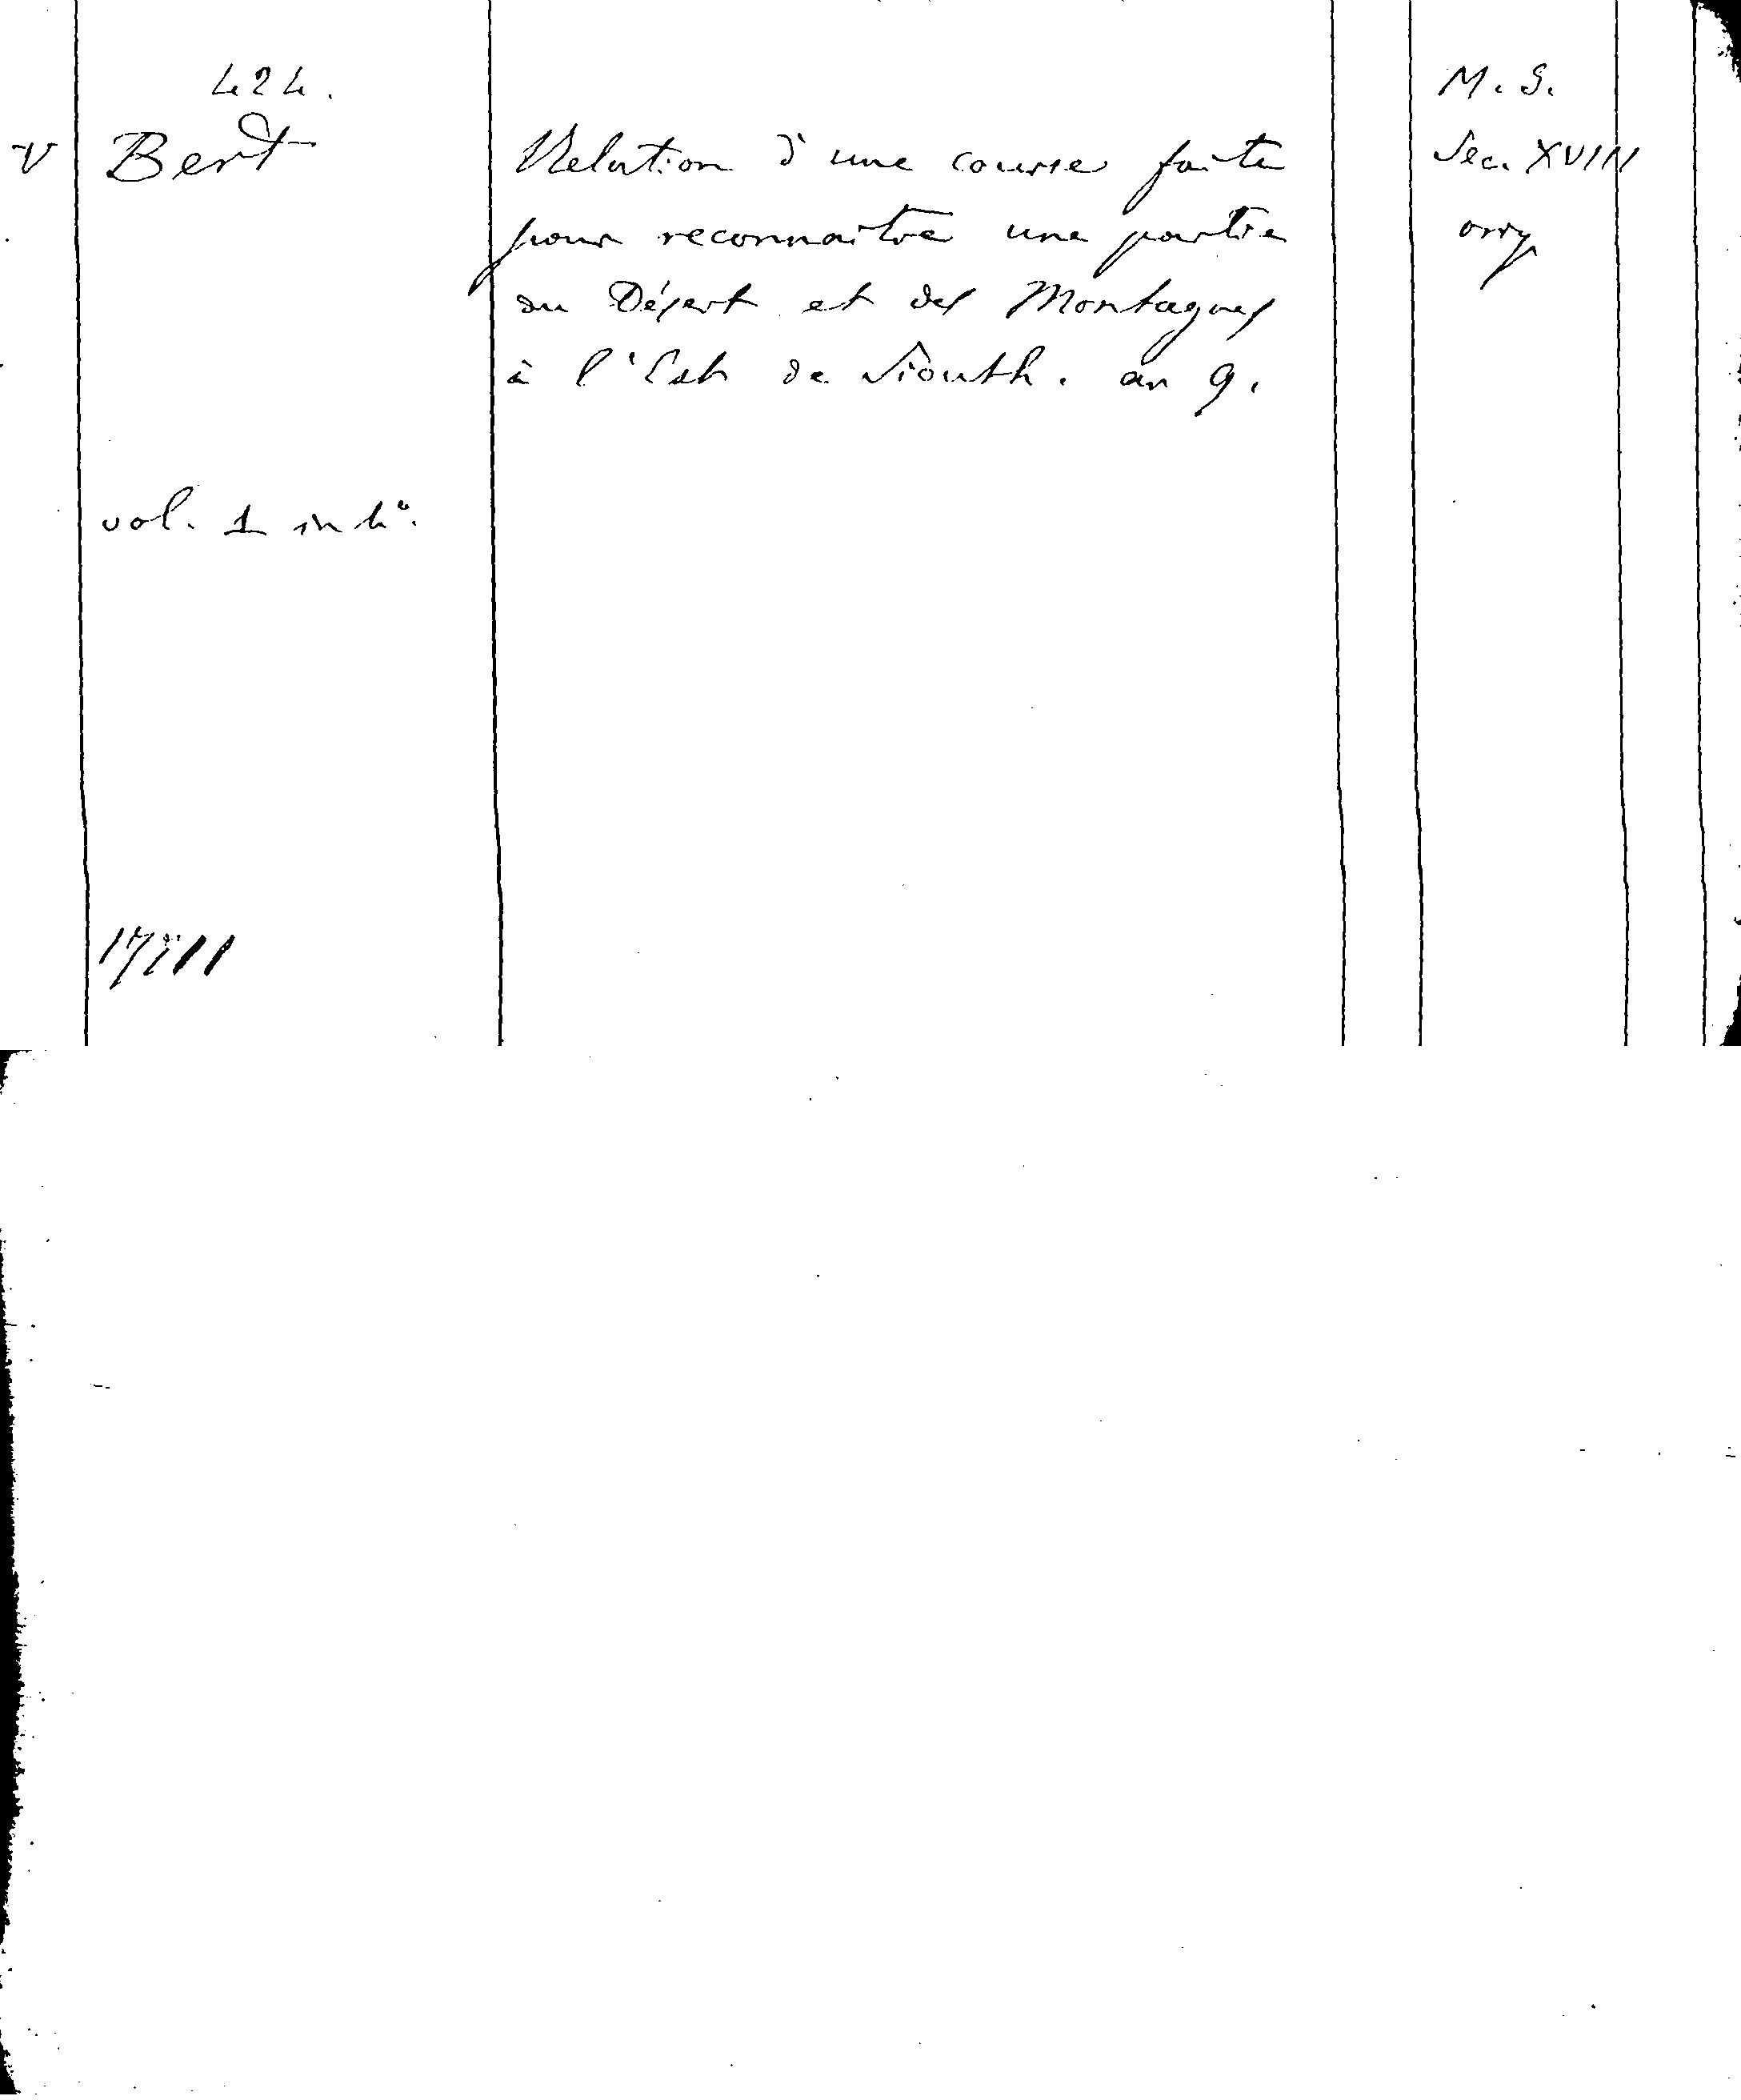 424.
V Bert
Relation d'une course faite
pour reconnaitre une partie
du Désert et des Montagnes
à l'Est de Siouth. an 9.
M. S.
Sec. XVIII
vol. 1 in 4°.